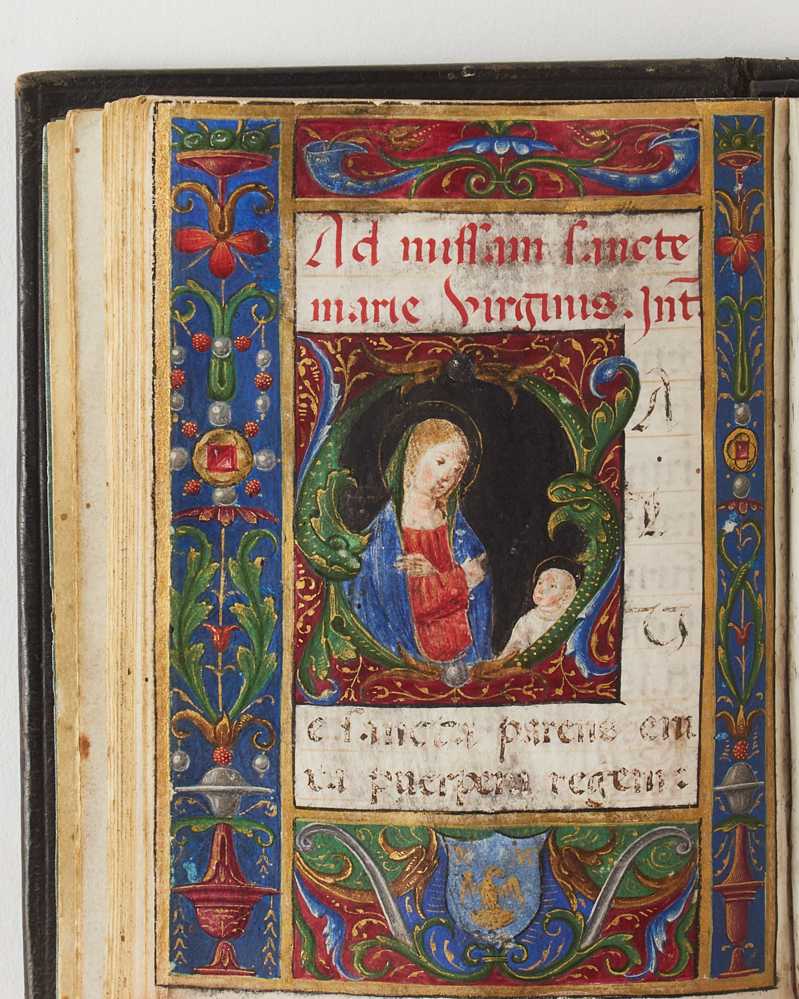 Ad missam sancte
marie Virginis. Int̄.
S
A
L
V
e sancta parens eni
xa puerpera regem: